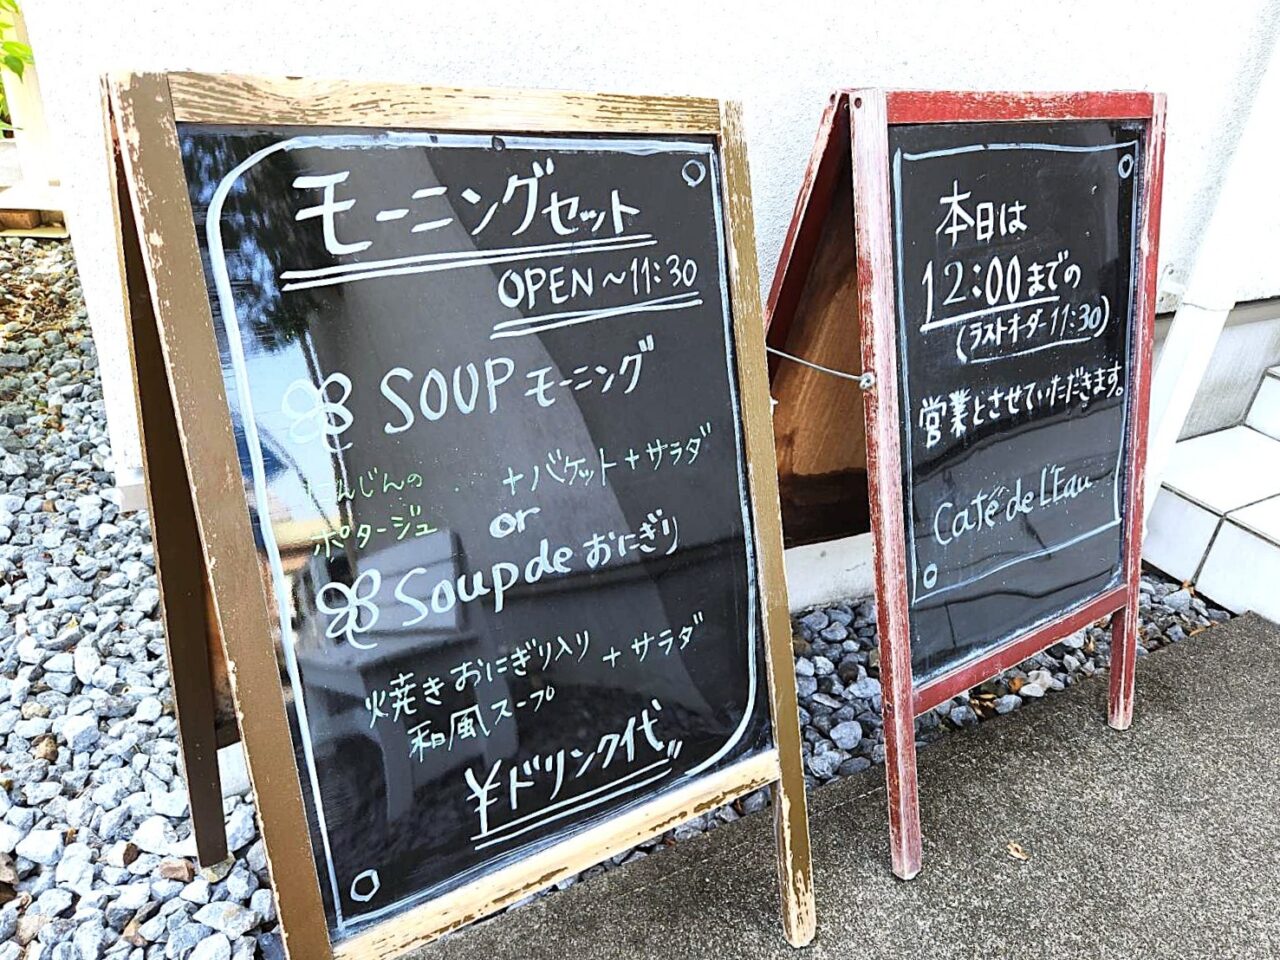 モーニングセット
OPEN～11:30
SOUP モーニング
にんじんの
ポタージュ
+バケット+サラダ
or
Soup de おにぎり
焼きおにぎり入り
和風スープ
+サラダ
¥ドリンク代〃
本日は
12:00までの
(ラストオーダー11:30)
営業とさせていただきます。
Café de L'Eau